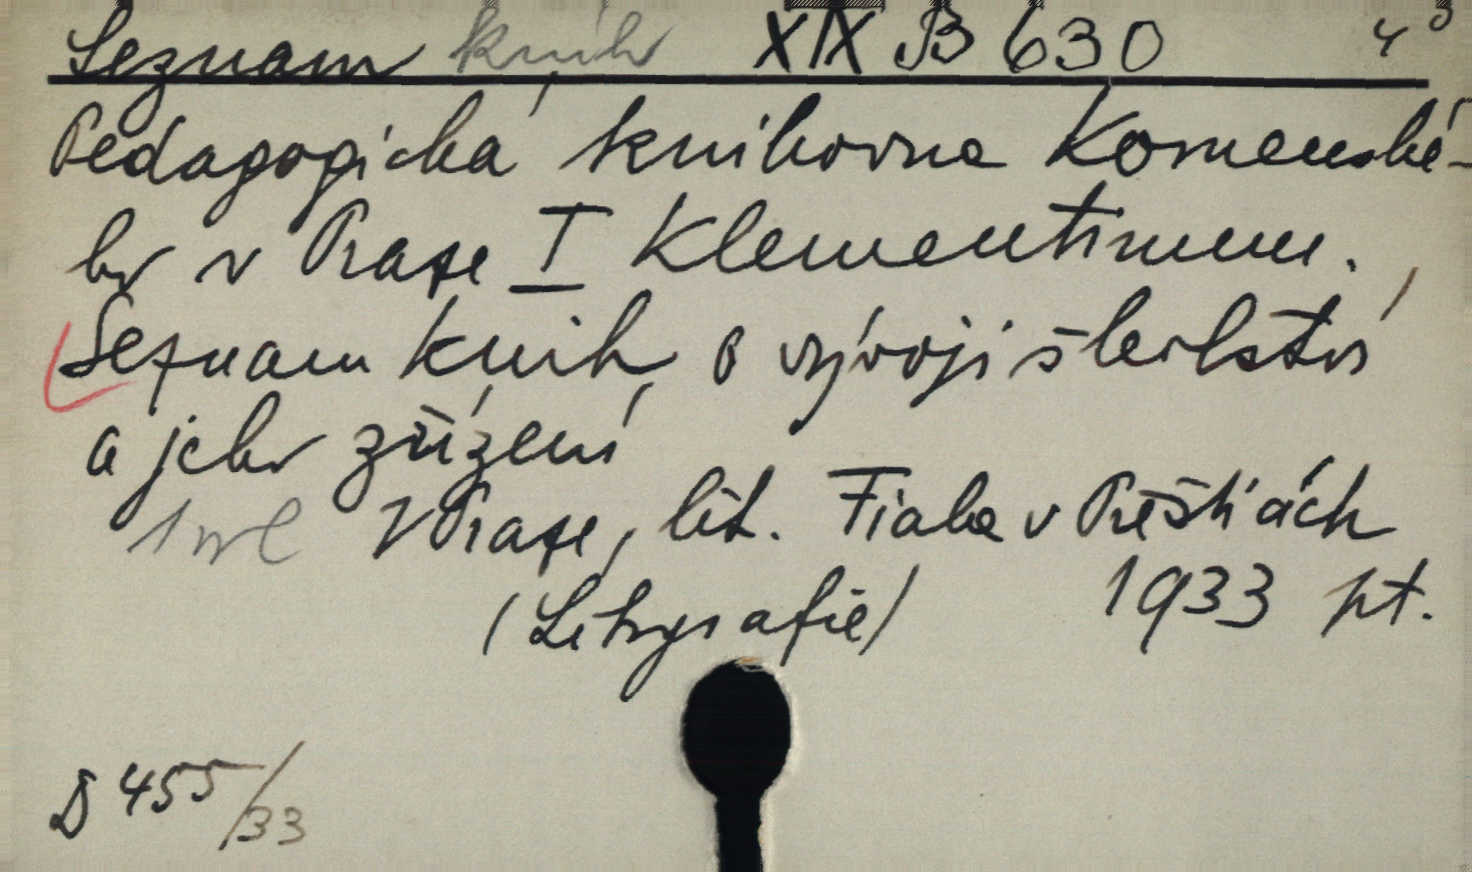 Seznam knih XIX B 630 4°
Pedagogická knihovna Komenské-
ho v Praze I Klementinum.
Seznam knih o vývoji školství
a jeho zřízení
1 wl V Praze, lit. Fiala v Přešticách
(Litografie) 1933 pt.
D 455/33